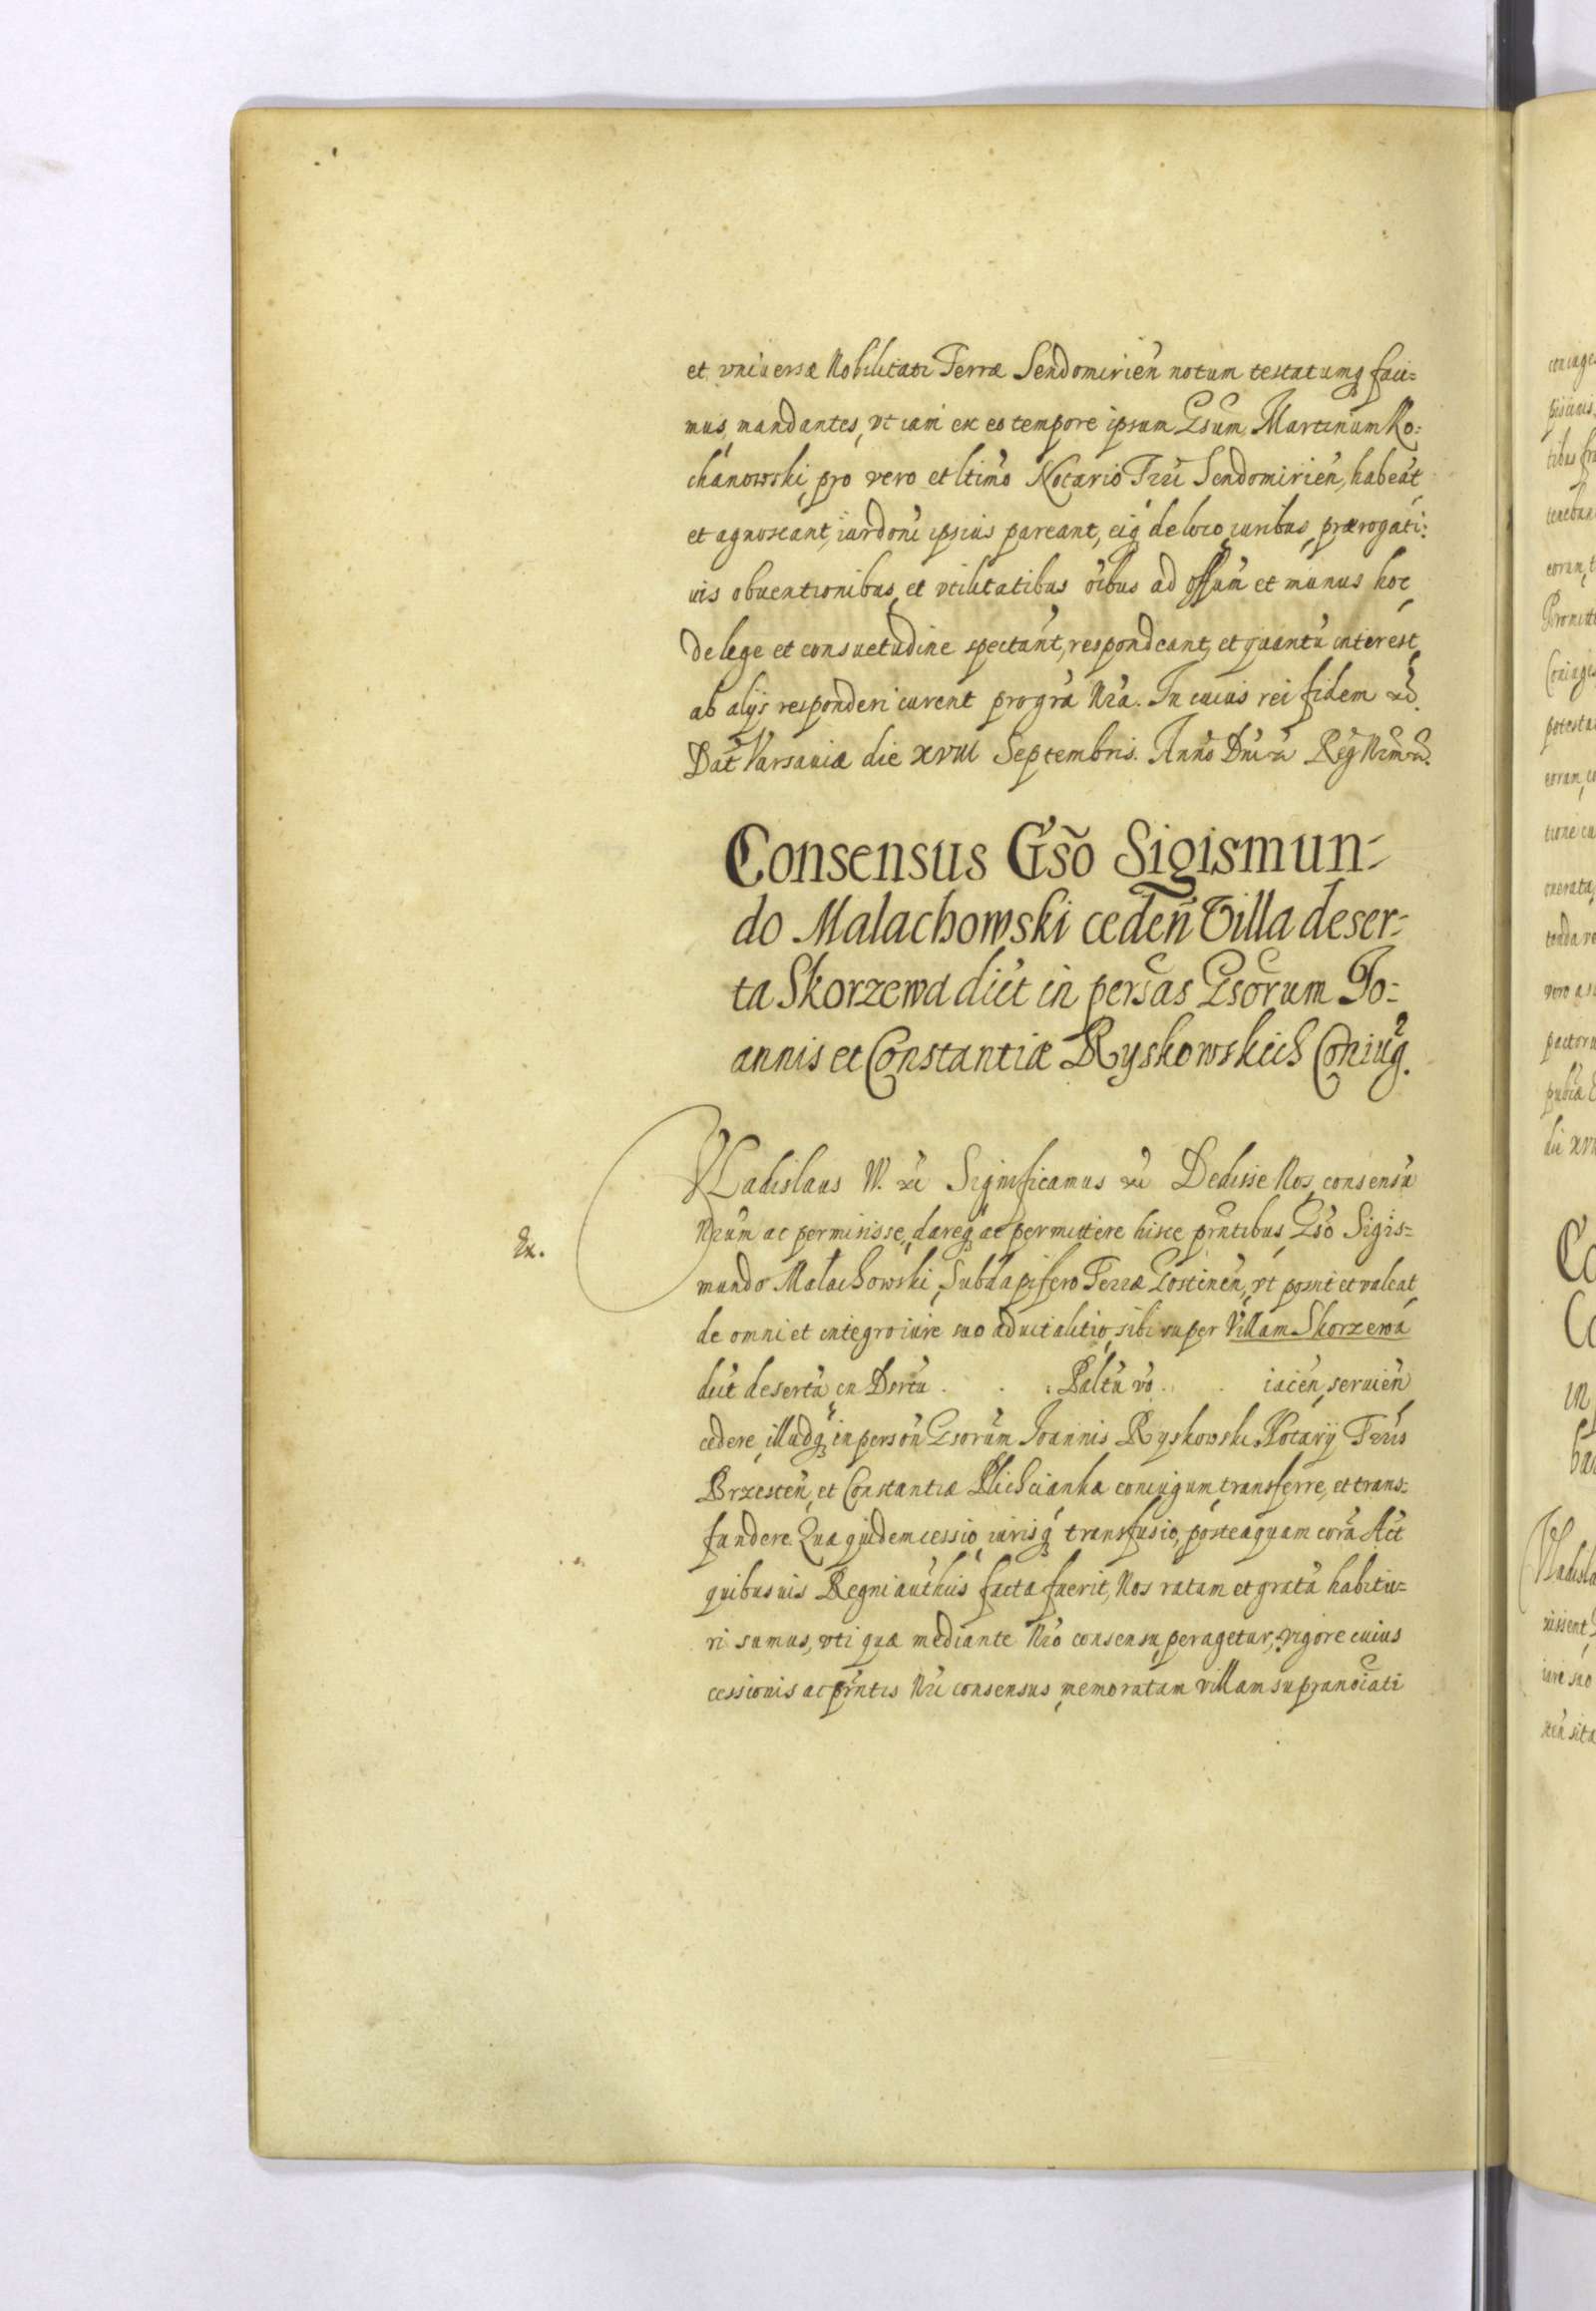 et vniuersæ Nobilitati Terræ Sendomirien̄ notum testatumq̨ faci=
mus, mandantes, vt iam ex eo tempore ipsum Gsum Martinum Ko=
chanowski, pro vero et ltimo Notario Trri Sendomirien̄, habeāt
et agnoscant, iurdoni ipsius pareant, eiq̨ de loco, iuribus, prærogati=
uis obuentionibus, et vtilitatibus oībus ad offum et munus hoc
de lege et consuetudine spectant, respondeant, et quantū interest,
ab alijs responderi curent pro grā Nrā. In cuius rei fidem etc.
Dat Varsauiæ die XVIII Septembris. Anno Dni etc Reg Nrm etc.
Consensus Gsõ Sigismun=
do Malachowski ceden̄ Villa deser=
ta Skorzewa dict in persas Gsorum Jo=
annis et Constantiæ Ryskowskich Coniug.
VLadislaus IV. etc Significamus etc Dedisse Nos consensū
Nrum ac permisisse, dareq̨ ac permittere hisce prntibus Gso Sigis=
Ex.
mundo Malachowski, Subdapifero Terræ Gostinen̄, vt possit et valeat
de omni et integro iure suo aduitalitio, sibi super Villam Skorzewa
dict desertā, in Dsrtū . . . Paltū vo . . iacen̄, seruien̄
cedere, illudq̨ in person̄ Gsorum Joannis Ryskowski Notarij Trris
Brzesten̄, et Constantiæ Plichcianka coniugum transferre, et trans=
fundere. Quæ quidem cessio, iurisq̨ transfusio, posteaquam corā Act
quibusuis Regni authcis facta fuerit, Nos ratam et gratā habitu=
ri sumus, vti quæ mediante Nro consensu peragetur, vigore cuius
cessionis ac prntis Nri consensus, memoratam villam supranoiati